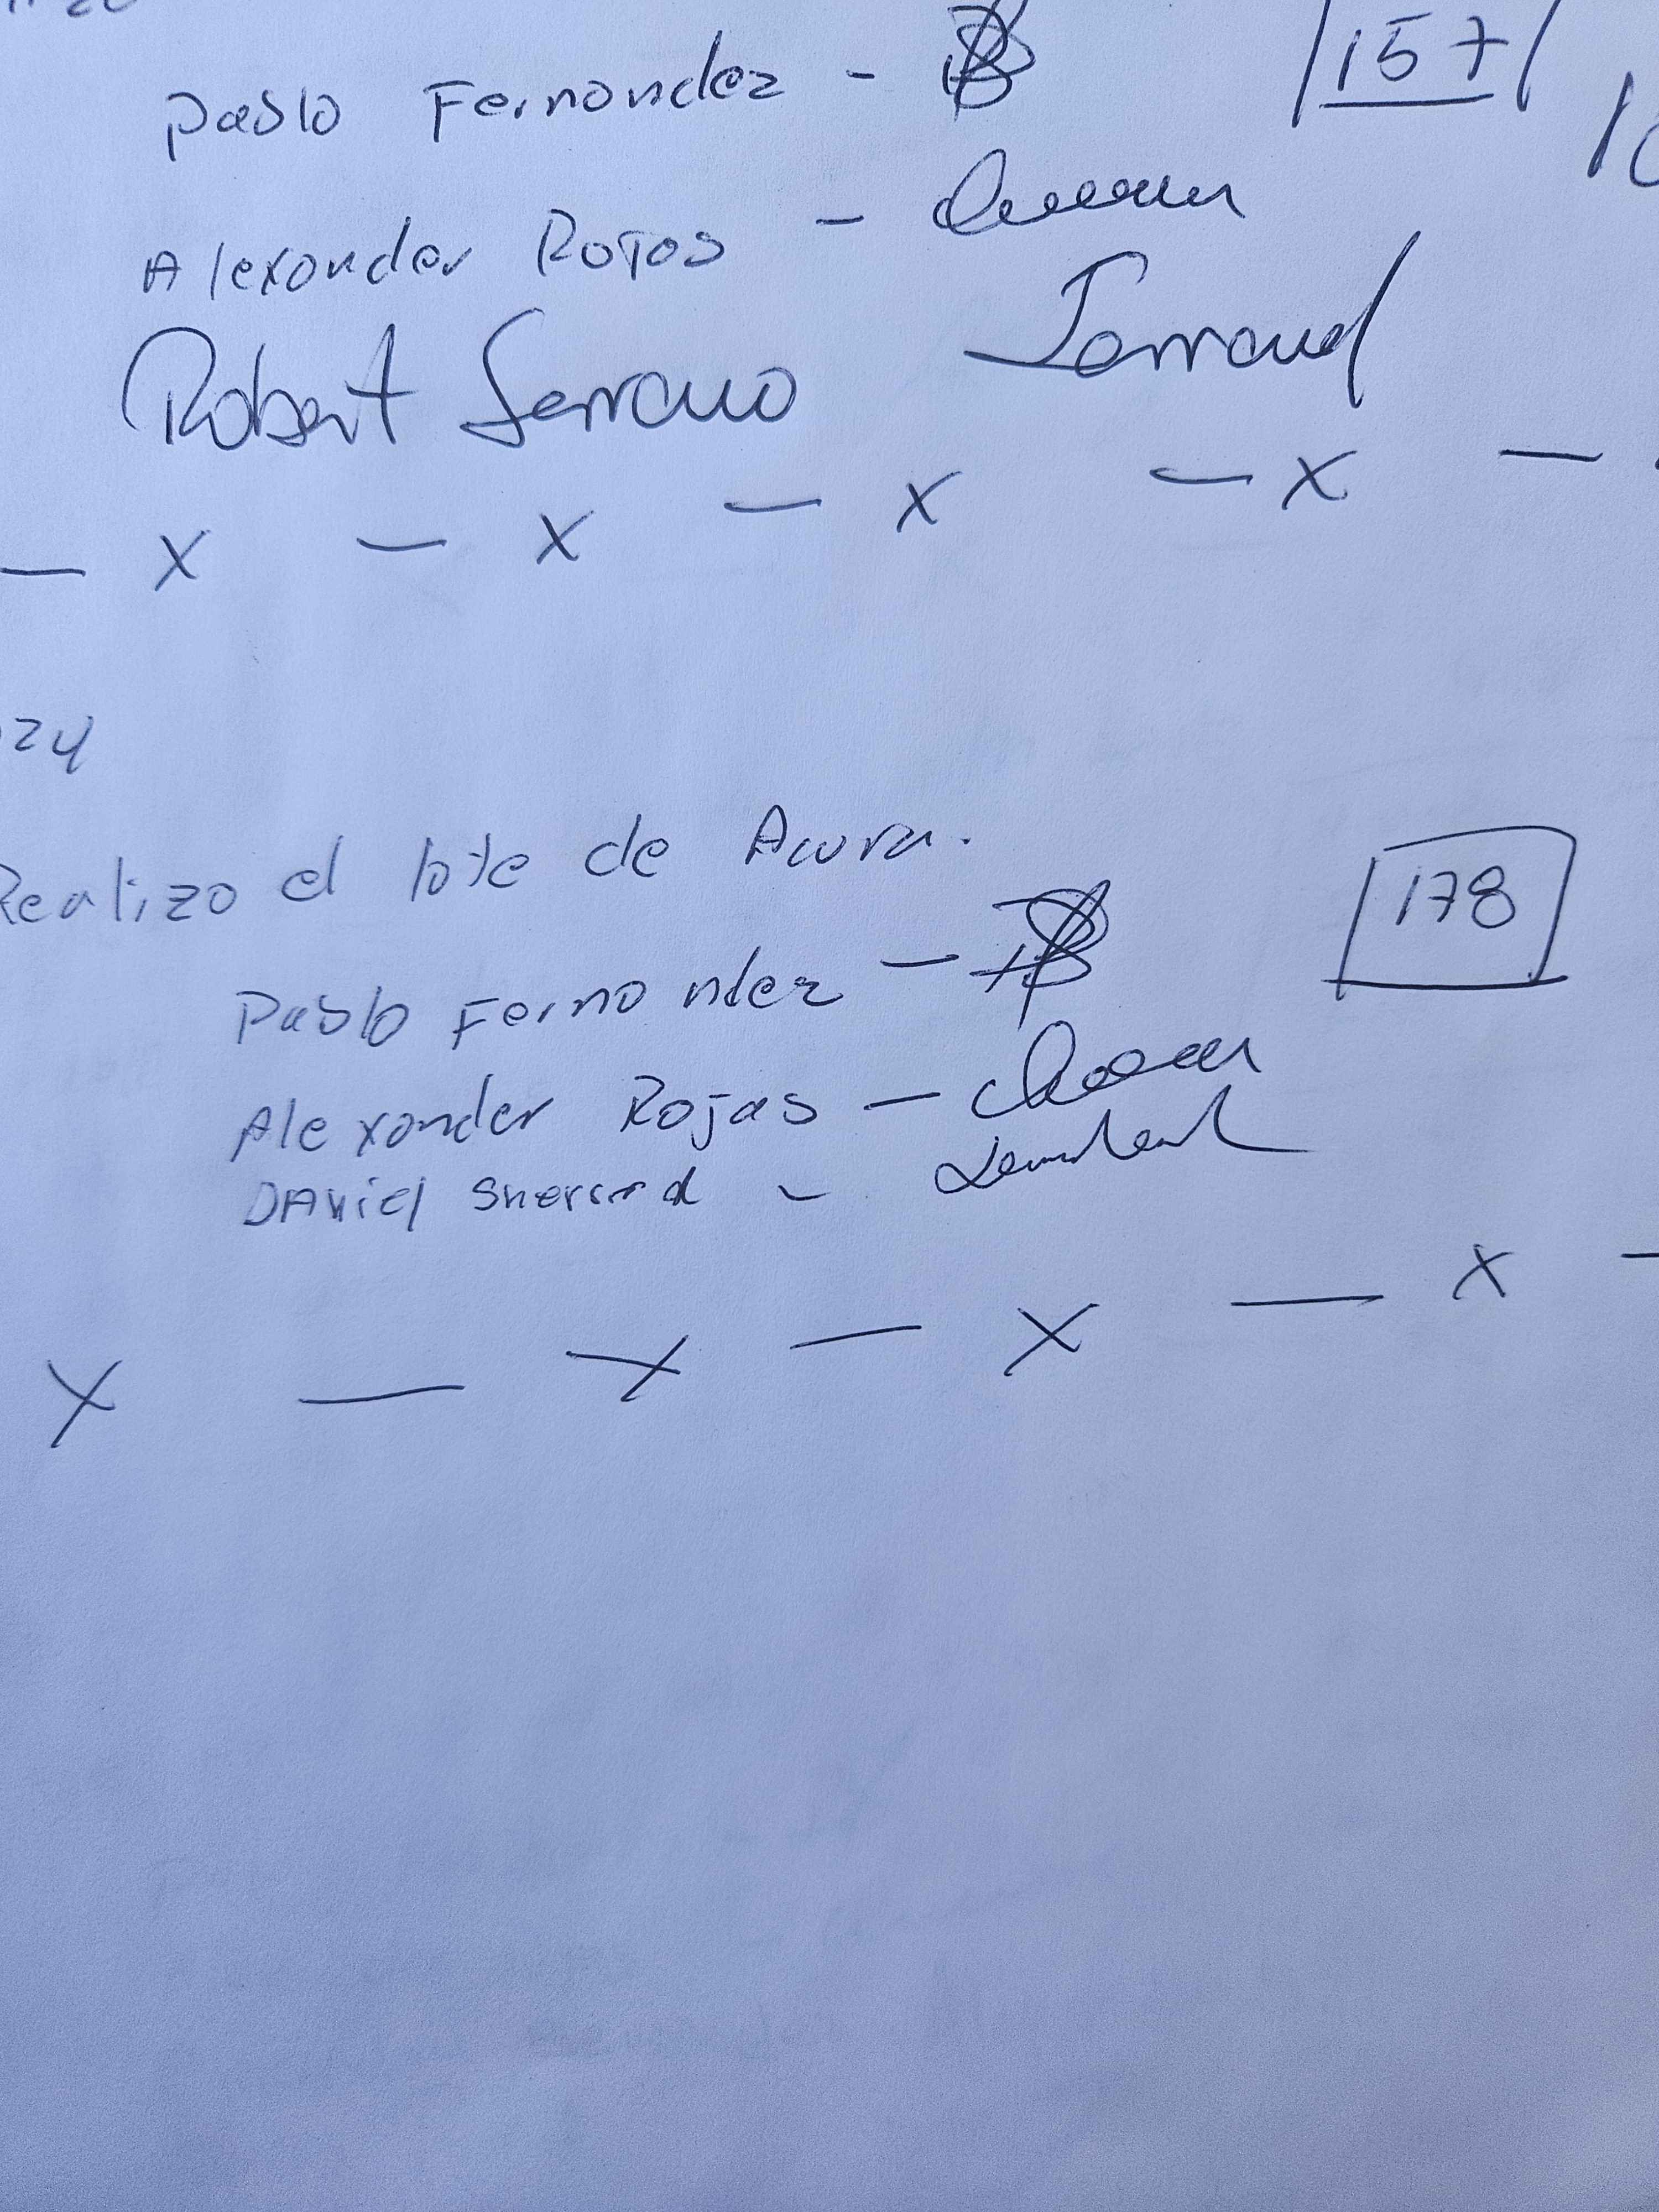 Pablo Fernandez - 157
Alexander Rojas -
Robert Serrano
- X - X - X - X -
24
Realizo el lote de Acura.
178
Pablo Fernandez -
Alexander Rojas -
Daniel -
X - X - X - X -